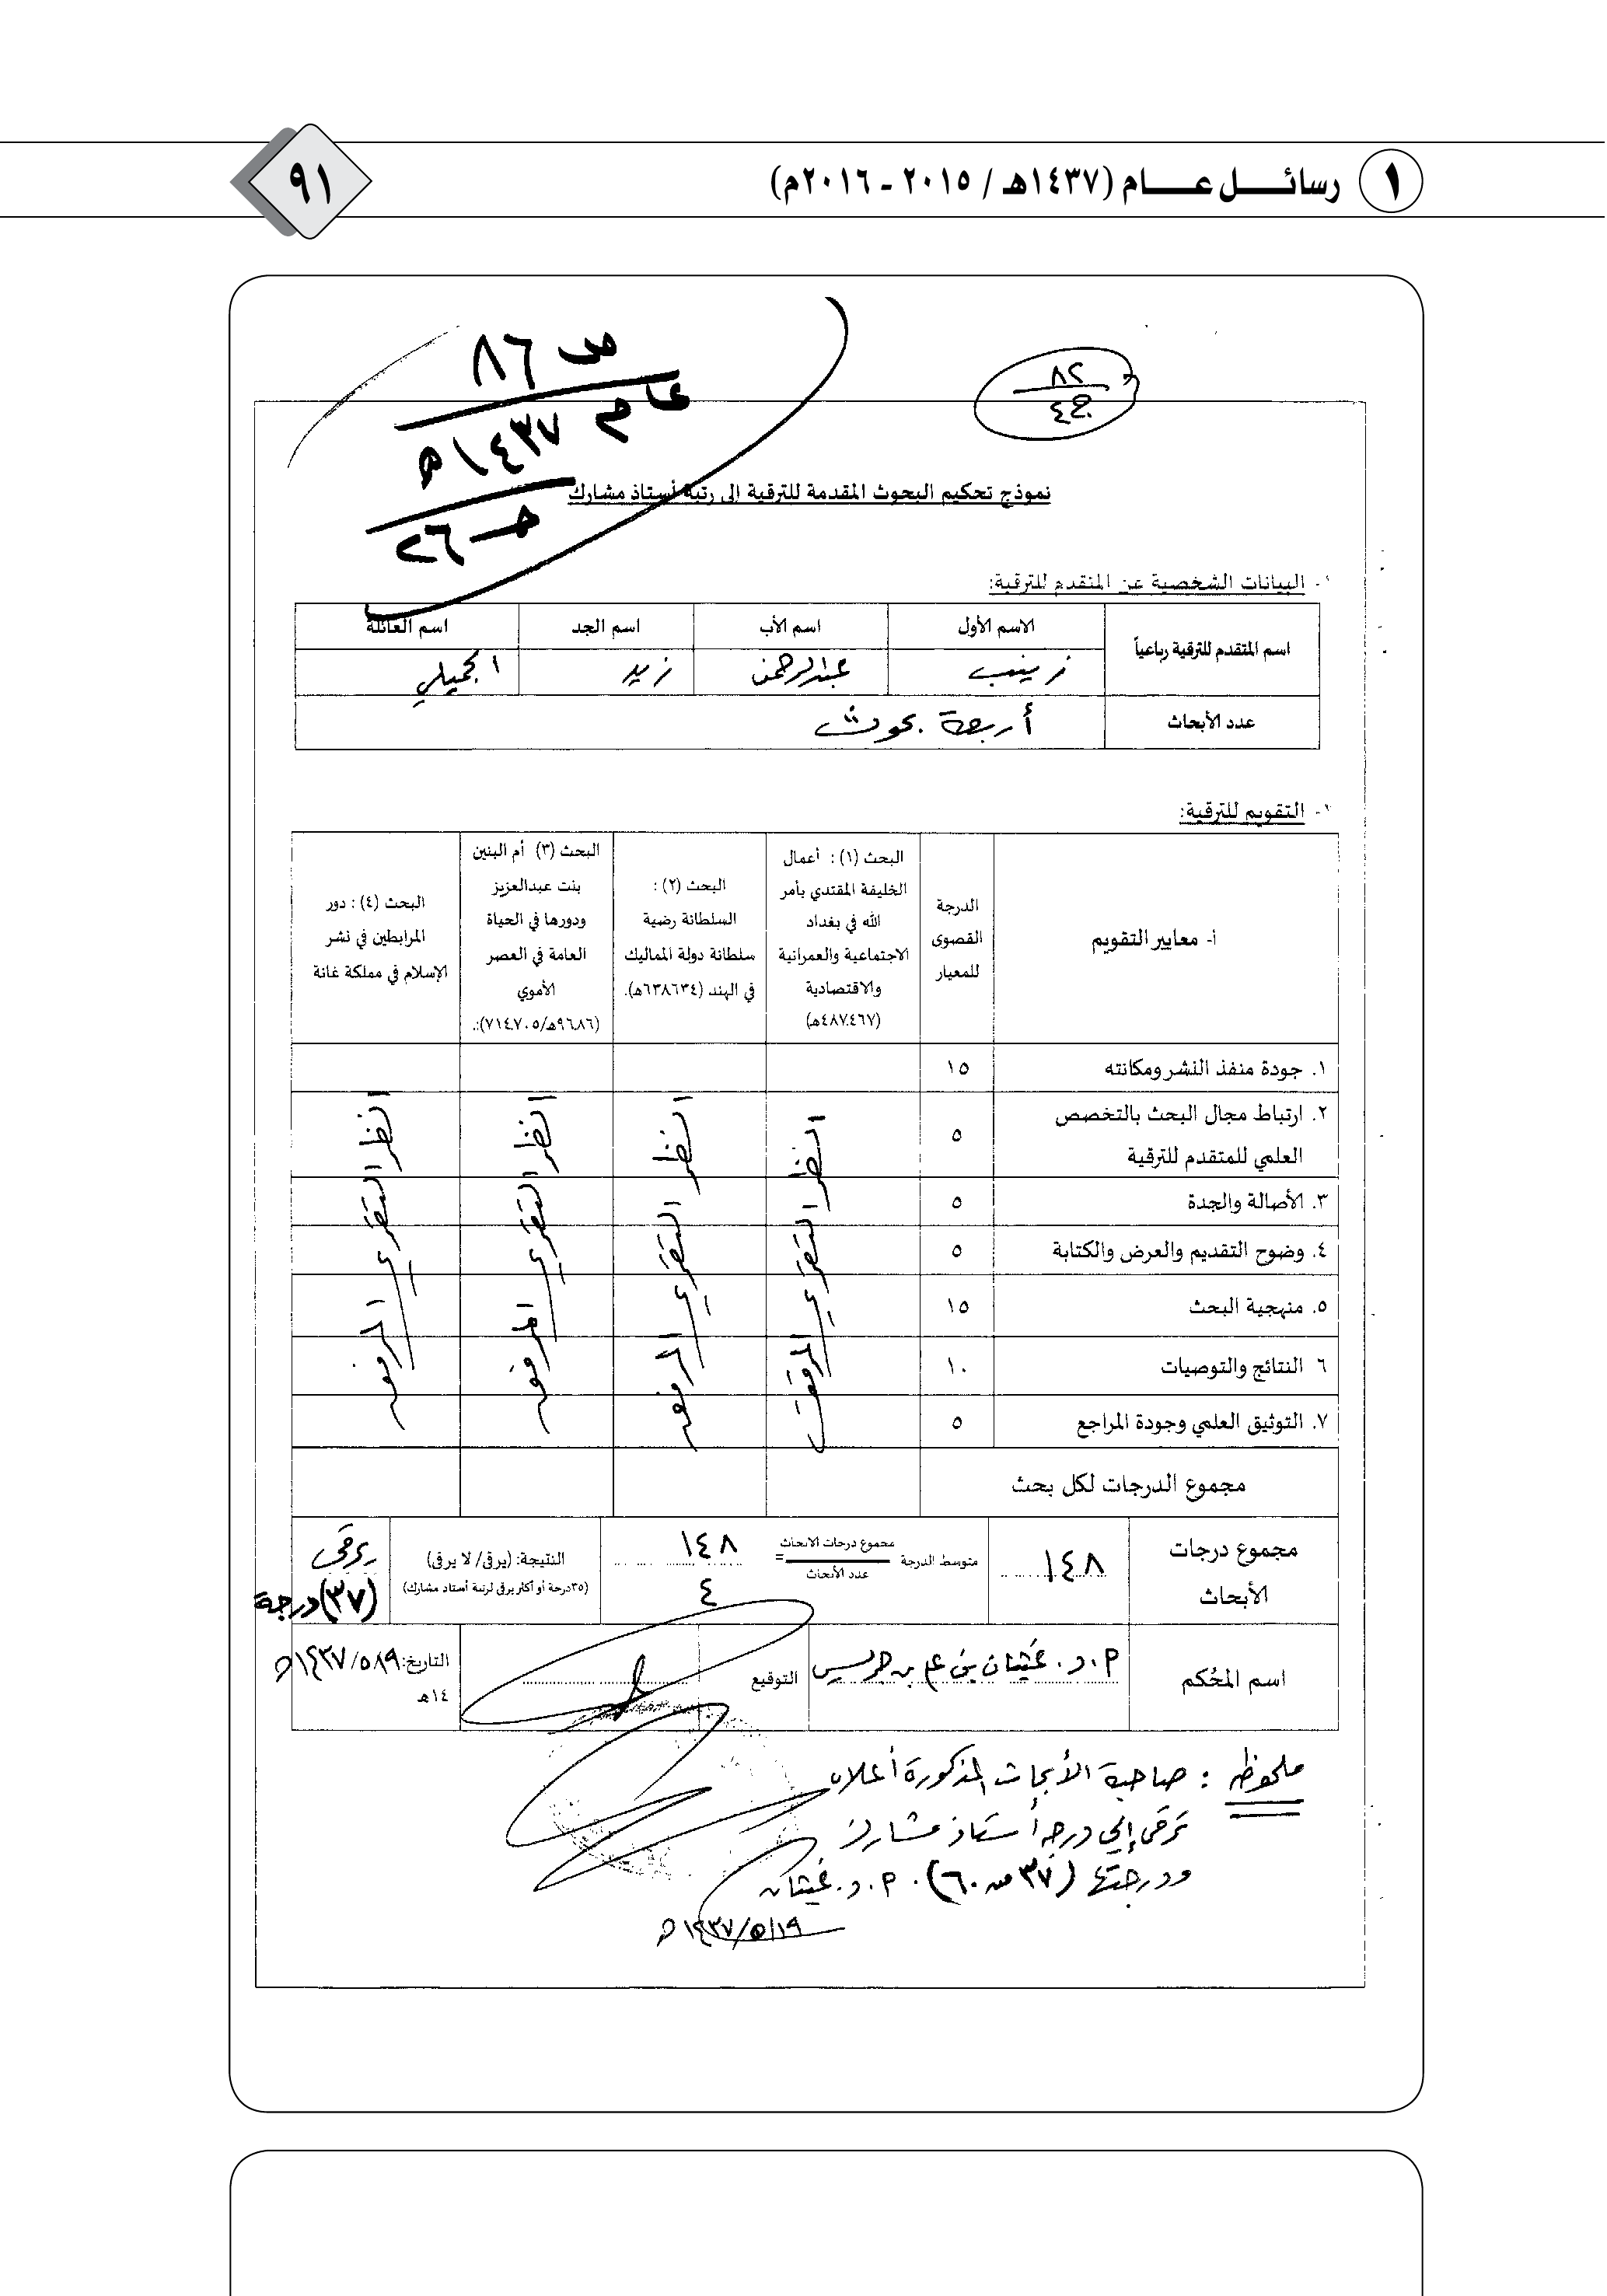 ١ رسائل عام (١٤٣٧هـ / ٢٠١٥ - ٢٠١٦م)
٩١
ص ٨٦
عام ١٤٣٧هـ
حـ ٢٦
٨٢
ج٤
نموذج تحكيم البحوث المقدمة للترقية إلى رتبة أستاذ مشارك
البيانات الشخصية عن المتقدم للترقية:
اسم المتقدم للترقية رباعياً
الاسم الأول اسم الأب اسم الجد اسم العائلة
زينب عبدالرحمن زيد الجميلي
عدد الأبحاث أربعة بحوث
التقويم للترقية:
أ- معايير التقويم
الدرجة
القصوى
للمعيار
البحث (١): أعمال
الخليفة المقتدي بأمر
الله في بغداد
الاجتماعية والعمرانية
والاقتصادية
(٤٨٧.٤٦٧هـ)
البحث (٢):
السلطانة رضية
سلطانة دولة المماليك
في الهند (٦٣٨٦٣٤هـ).
البحث (٣) أم البنين
بنت عبدالعزيز
ودورها في الحياة
العامة في العصر
الأموي
(٩٦.٨٦هـ/٧١٤.٧٠٥):.
البحث (٤): دور
المرابطين في نشر
الإسلام في مملكة غانة
١. جودة منفذ النشر ومكانته ١٥
٢. ارتباط مجال البحث بالتخصص
العلمي للمتقدم للترقية ٥
٣. الأصالة والجدة ٥
٤. وضوح التقديم والعرض والكتابة ٥
٥. منهجية البحث ١٥
٦ النتائج والتوصيات ١٠
٧. التوثيق العلمي وجودة المراجع ٥
انظر التقرير المرفق
انظر التقرير المرفق
انظر التقرير المرفق
انظر التقرير المرفق
مجموع الدرجات لكل بحث
مجموع درجات
الأبحاث
١٤٨
متوسط الدرجة
مجموع درجات الأبحاث
عدد الأبحاث
=
١٤٨
٤
النتيجة: (يرقى/ لا يرقى)
(٣٥درجة أو أكثر يرقى لرتبة أستاذ مشارك)
يرقى
(٣٧) درجة
اسم المُحكم أ.د. غيثان بن علي بن جريس
التوقيع
التاريخ: ١٤٣٧/٥/١٩هـ
١٤هـ
ملحوظة: صاحبة الأبحاث المذكورة أعلاه
ترقى إلى درجة أستاذ مشارك
ودرجتها (٣٧ من ٦٠). أ.د. غيثان
١٤٣٧/٥/١٩هـ